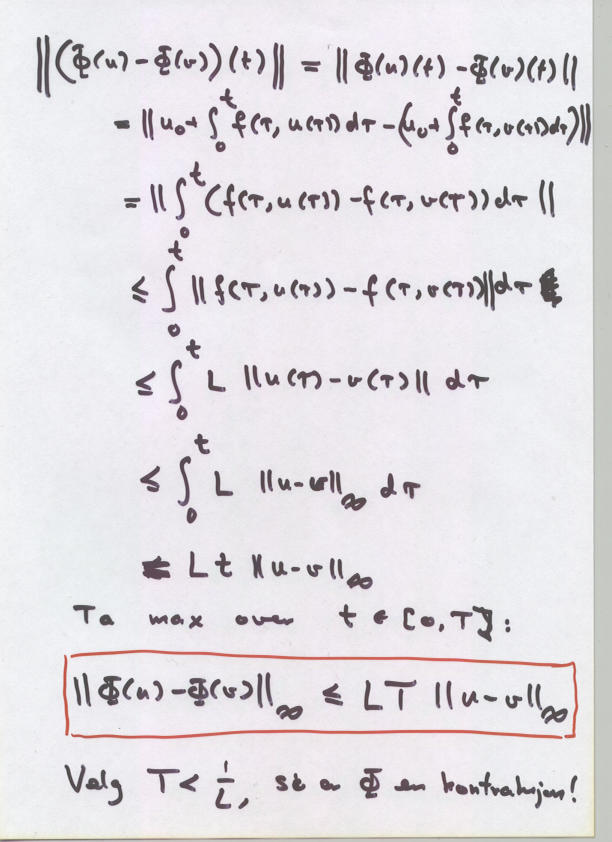 ||(Φ(u) - Φ(v))(t)|| = ||Φ(u)(t) - Φ(v)(t)||
= ||u₀ + ∫₀ᵗ f(τ, u(τ)) dτ - (u₀ + ∫₀ᵗ f(τ, v(τ)) dτ)||
= ||∫₀ᵗ (f(τ, u(τ)) - f(τ, v(τ))) dτ||
≤ ∫₀ᵗ ||f(τ, u(τ)) - f(τ, v(τ))|| dτ
≤ ∫₀ᵗ L ||u(τ) - v(τ)|| dτ
≤ ∫₀ᵗ L ||u - v||∞ dτ
= L t ||u - v||∞
Ta max over t ∈ [0, T]:
||Φ(u) - Φ(v)||∞ ≤ LT ||u - v||∞
Velg T < 1/L, så er Φ en kontraksjon!